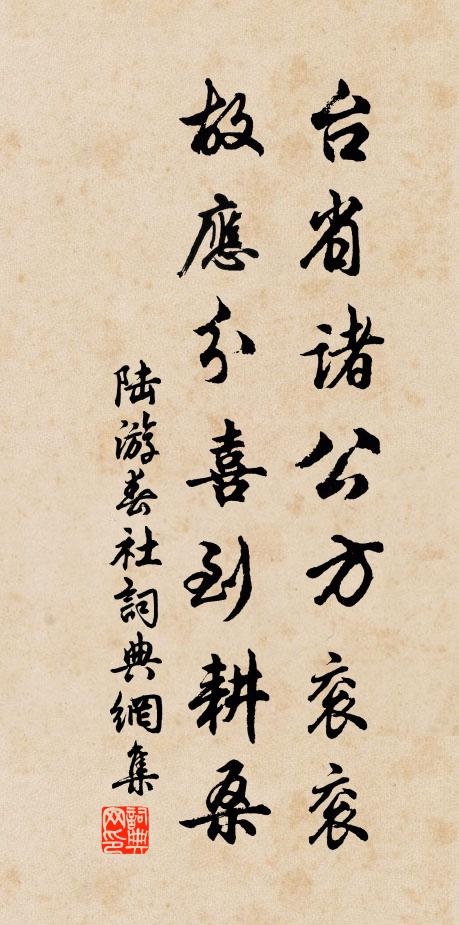 台省諸公方衮衮
故應分喜到耕桑
陸游春社詞典網集
詞典网印